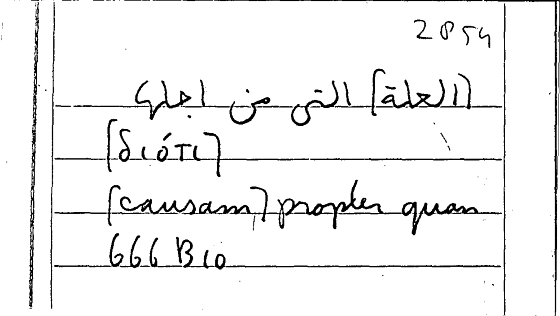 2854
[العلة] التى من اجلها
[διότι]
[causam] propter quam
666 B10